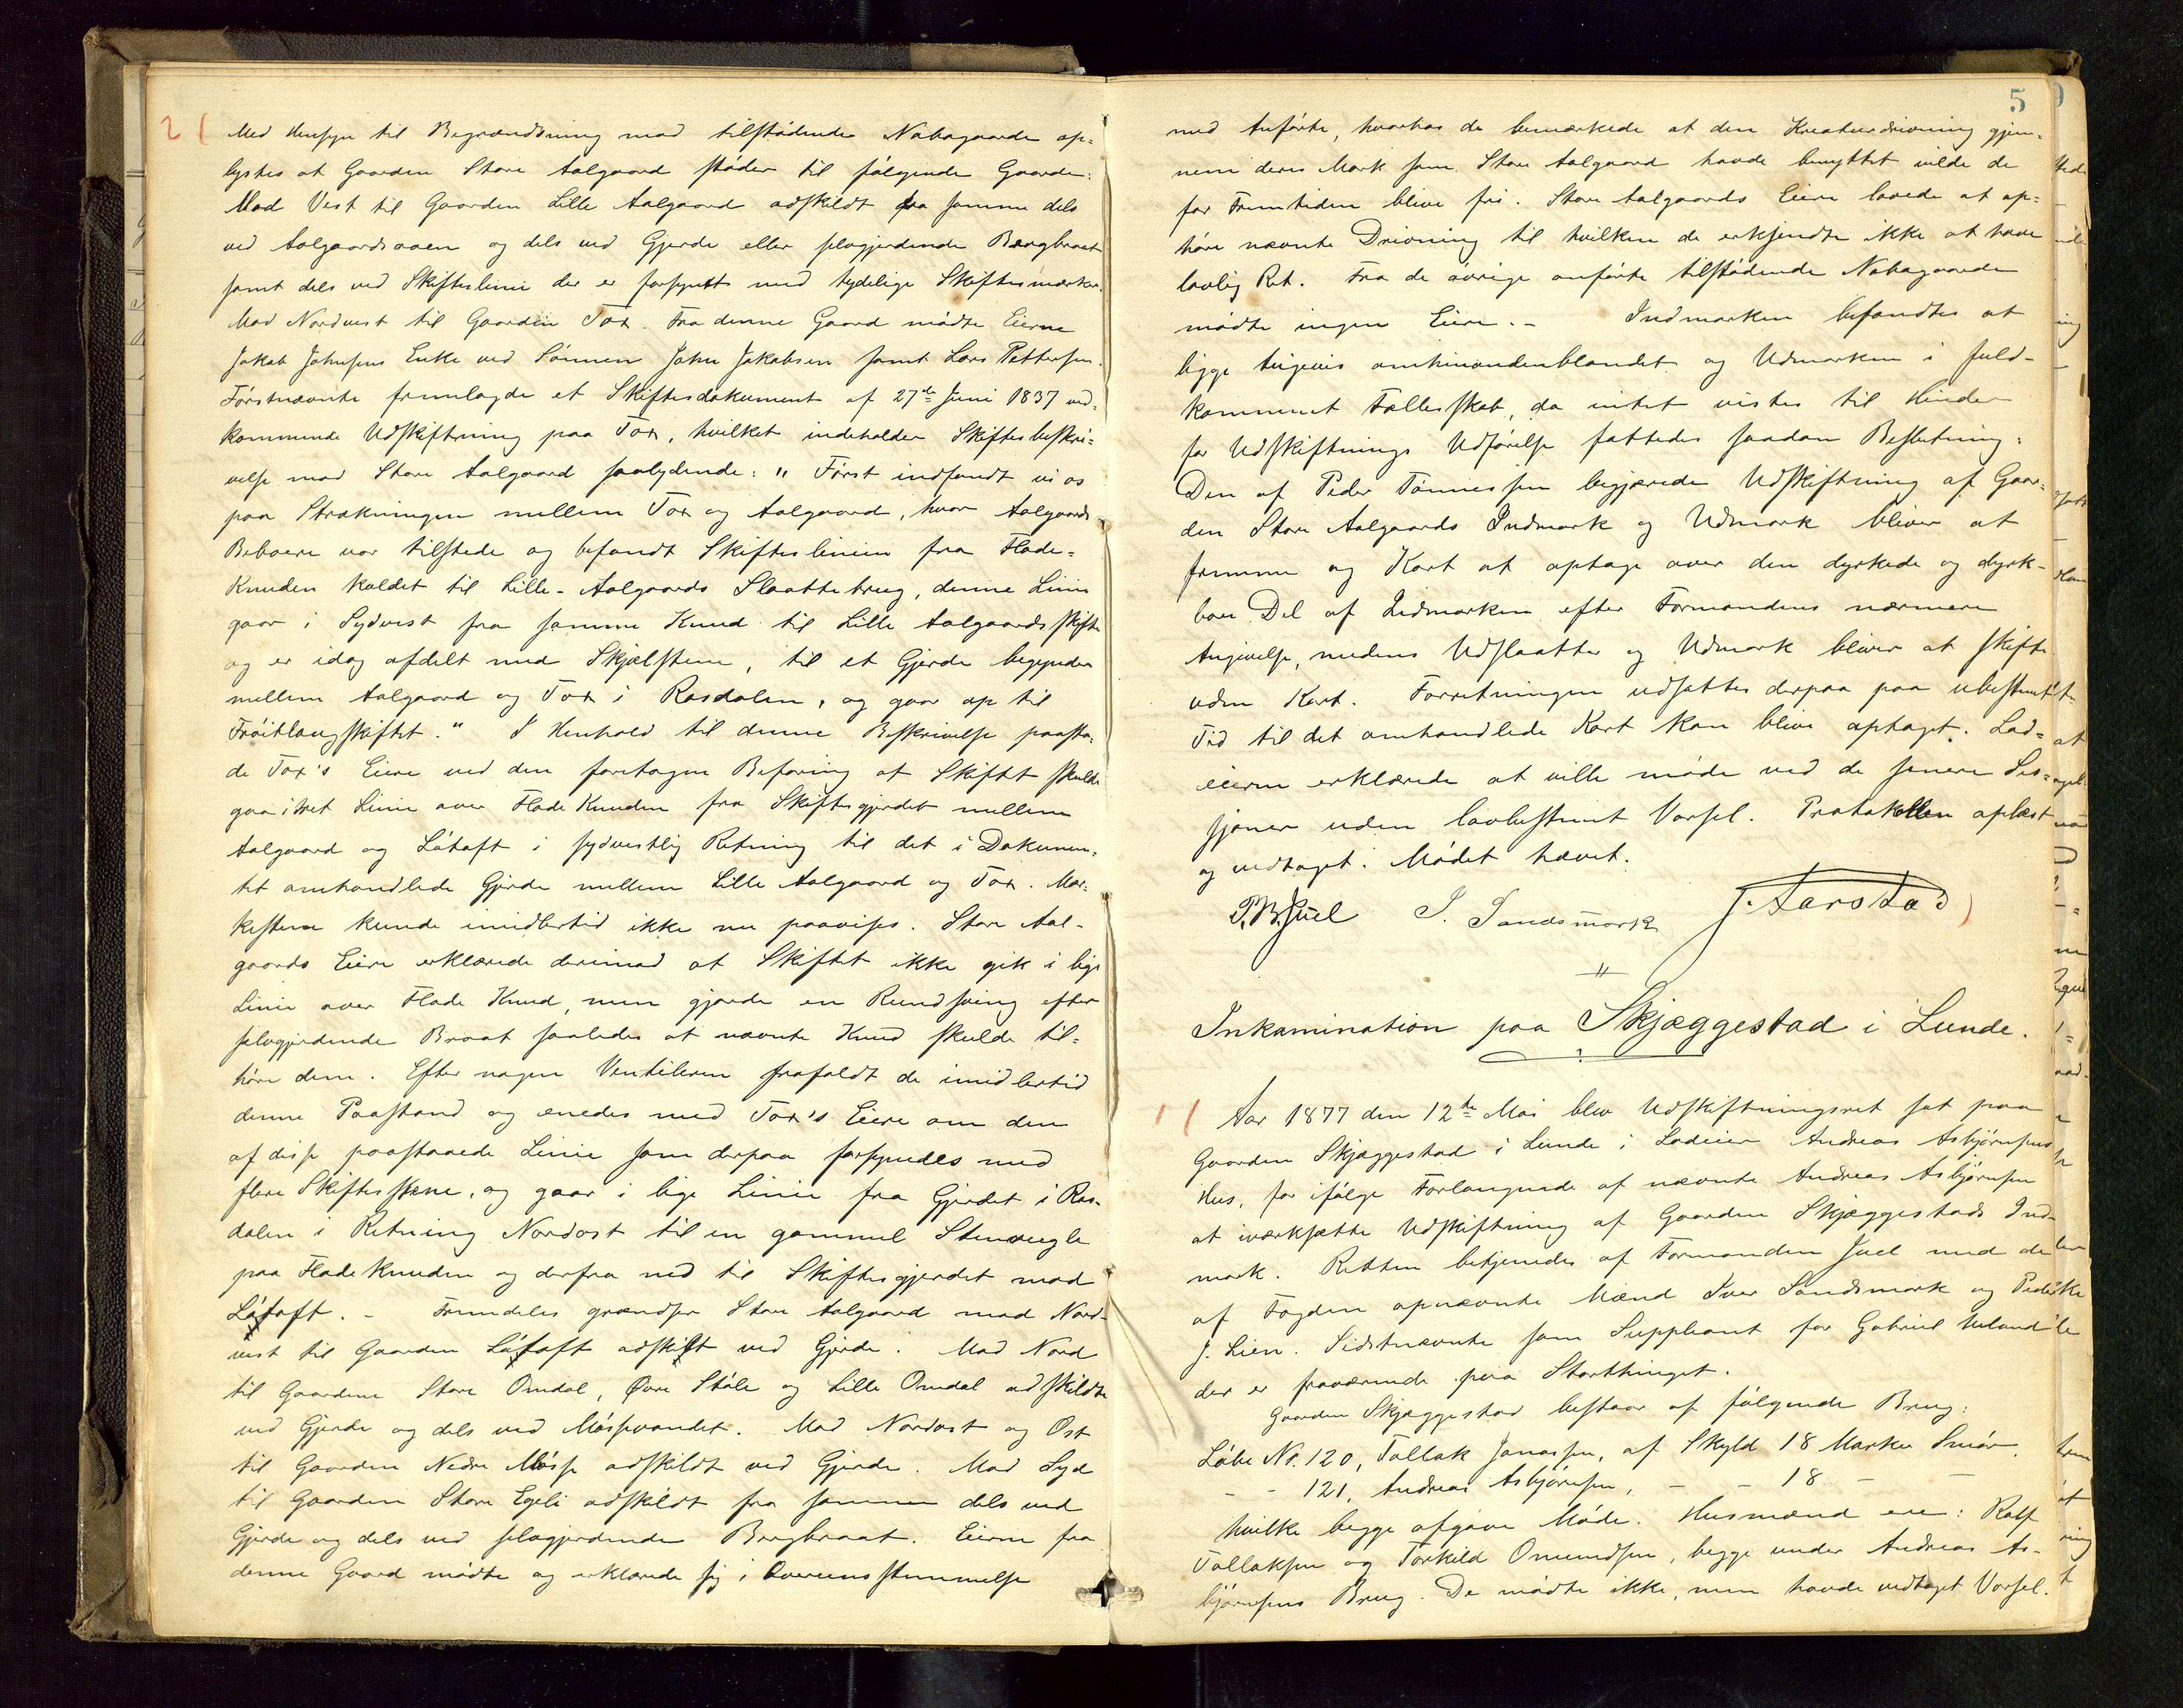 2 (
Med Hensyn til Begrændsning mod tilstødende Nabogaarde op-
lystes at Gaarden Store Aalgaard støder til følgende Gaarde:
Mod Vest til Gaarden Lille Aalgaard adskildt fra samme dels
ved Aalgaardsaaen og dels ved Gjerde eller selvgjerdende Bærgbraat
samt dels ved Skifteslinie der er forsynets med tydelige Skiftesmærker.
Mod Nordvest til Gaarden Tox. Fra denne Gaard mødte Eierne
Jakob Johnsens Enke ved Sønnen John Jakobsen samt Lars Pettersen.
Førstnævnte fremlagde et Skiftesdokument af 27de Juni 1837 ved-
kommende Udskiftning paa Tox, hvilket indeholder Skiftesbeskri-
velse mod Store Aalgaard saalydende: " Først indfandt vi os
paa Strækningen mellem Tox og Aalgaard, hvor Aalgaards
Beboere var tilstede og befandt Skifteslinien fra Flade-
Knuden kaldet til Lille-Aalgaards Slaattebrug, denne Linie
gaar i Sydvest fra samme Knud til Lille Aalgaards Skifte
og er idag afdelt med Skjælstene, til et Gjerde begynder
mellem Aalgaard og Tox i Rasdalen, og gaar op til
Frøitlangskiftet." I Henhold til denne Beskrivelse paasto-
de Tox's Eiere ved den foretagne Befaring at Skiftet skulde
gaa i ret Linie over Flade Knuden fra Skiftesgjerdet mellem
Aalgaard og Låtoft i sydvestlig Retning til det i Dokumen-
tet omhandlede Gjerde mellem Lille Aalgaard og Tox. Mær-
kestene kunde imidlertid ikke nu paavises. Store Aal-
gaards Eiere erklærede derimod at Skiftet ikke gik i lige
Linie over Flade Knud, men gjorde en Rundsving efter
selvgjerdende Braat saaledes at nævnte Knud skulde til-
høre dem. Efter nogen Ventileren frafaldt de imidlertid
denne Paastand og enedes med Tox's Eiere om den
af disse paastaaede Linie som derpaa forsynedes med
flere Skiftesstene, og gaar i lige Linie fra Gjerdet i Ras-
dalen i Retning Nordost til en gammel Stenvegle
paa Flade Knuden og derfra ned til Skiftesgjerdet mod
Låtoft. - Fremdeles grændser Store Aalgaard mod Nord-
vest til Gaarden Låtoft adskilt ved Gjerde. Mod Nord
til Gaardene Store Omdal, Øvre Ståle og Lille Omdal adskildte
ved Gjerde og dels ved Møssevandet. Mod Nordost og Ost
til Gaarden Nedre Møsse adskildt ved Gjerde. Mod Syd
til Gaarden Store Egeli adskildt fra samme dels ved
Gjerde og dels ved selvgjerdende Bergbraat. Eierne fra
denne Gaard mødte og erklærede sig i Overensstemmelse
5
med Anførte, hvorhos de bemærkede at den Kreaturdrivning gjen-
nem deres Mark som Store Aalgaard havde benyttet vilde de
for Fremtiden blive fri. Store Aalgaards Eiere lovede at op-
høre nævnte Drivning til hvilken de erkjendte ikke at have
lovlig Ret. Fra de øvrige anførte tilstødende Nabogaarde
mødte ingen Eiere. - Indmarken befandtes at
ligge teigevis omhinandenblandet og Udmarken i fuld-
kommet Fællesskab, da intet vistes til Hinder
for Udskiftnings Udførelse fattedes saadan Beslutning:
Den af Peder Tønnessen begjærede Udskiftning af Gaar-
den Store Aalgaards Indmark og Udmark bliver at
fremme og Kart at optage over den dyrkede og dyrk-
bare Del af Indmarken efter Formandens nærmere
Angivelse, medens Udslaatter og Udmark bliver at skifte
uden Kart. Forretningen udsattes derpaa paa ubestemt
Tid til det omhandlede Kart kan blive optaget. Lod-
eierne erklærede at ville møde ved de senere Ses-
sjoner uden lovbestemt Varsel. Protokollen oplæst
og vedtaget. Mødet hævet.
P.B.Juel I. Sandsmark J. Aarstad )
"
Inkamination paa Skjæggestad i Lunde.
1 ( Aar 1877 den 12te Mai blev Udskiftningsret sat paa
Gaarden Skjæggestad i Lunde i Lodeier Andreas Asbjørnsens
Hus, for ifølge Forlangende af nævnte Andreas Asbjørnsen
at iværksætte Udskiftning af Gaarden Skjæggestads Ind-
mark. Retten betjenedes af Formanden Juel med de
af Fogden opnævnte Mænd Iver Sandsmark og Peder
J. Lien. Sidstnævnte som Suppleant for Gabriel Ueland
der er fraværende paa Storthinget.
Gaarden Skjæggestad bestaar af følgende Brug:
Løbe Nr. 120, Tollak Jonassen, af Skyld 18 Marker Smør.
- - 121, Andreas Asbjørnsen, - - 18 - -
hvilke begge afgave Møde. Husmænd ere: Rolf
Tollaksen og Torkild Omundsen, begge under Andreas As-
bjørnsens Brug. De mødte ikke, men havde vedtaget Varsel.